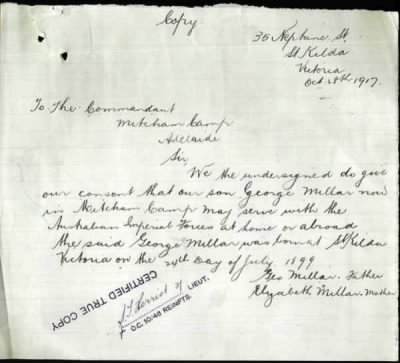 Copy
35 Neptune St.
St Kilda
Victoria
Oct 28th 1917.
To The Commandant
Mitcham Camp
Adelaide
Sir,
We the undersigned do give
our consent that our son George Millar now
in Mitcham Camp may serve with the
Australian Imperial Forces at home or abroad
the said George Millar was born at St Kilda
Victoria on the 24th Day of July 1899
Geo Millar. Father
Elizabeth Millar. Mother
CERTIFIED TRUE COPY
LIEUT.
O.C. 10/48 REINFTS.